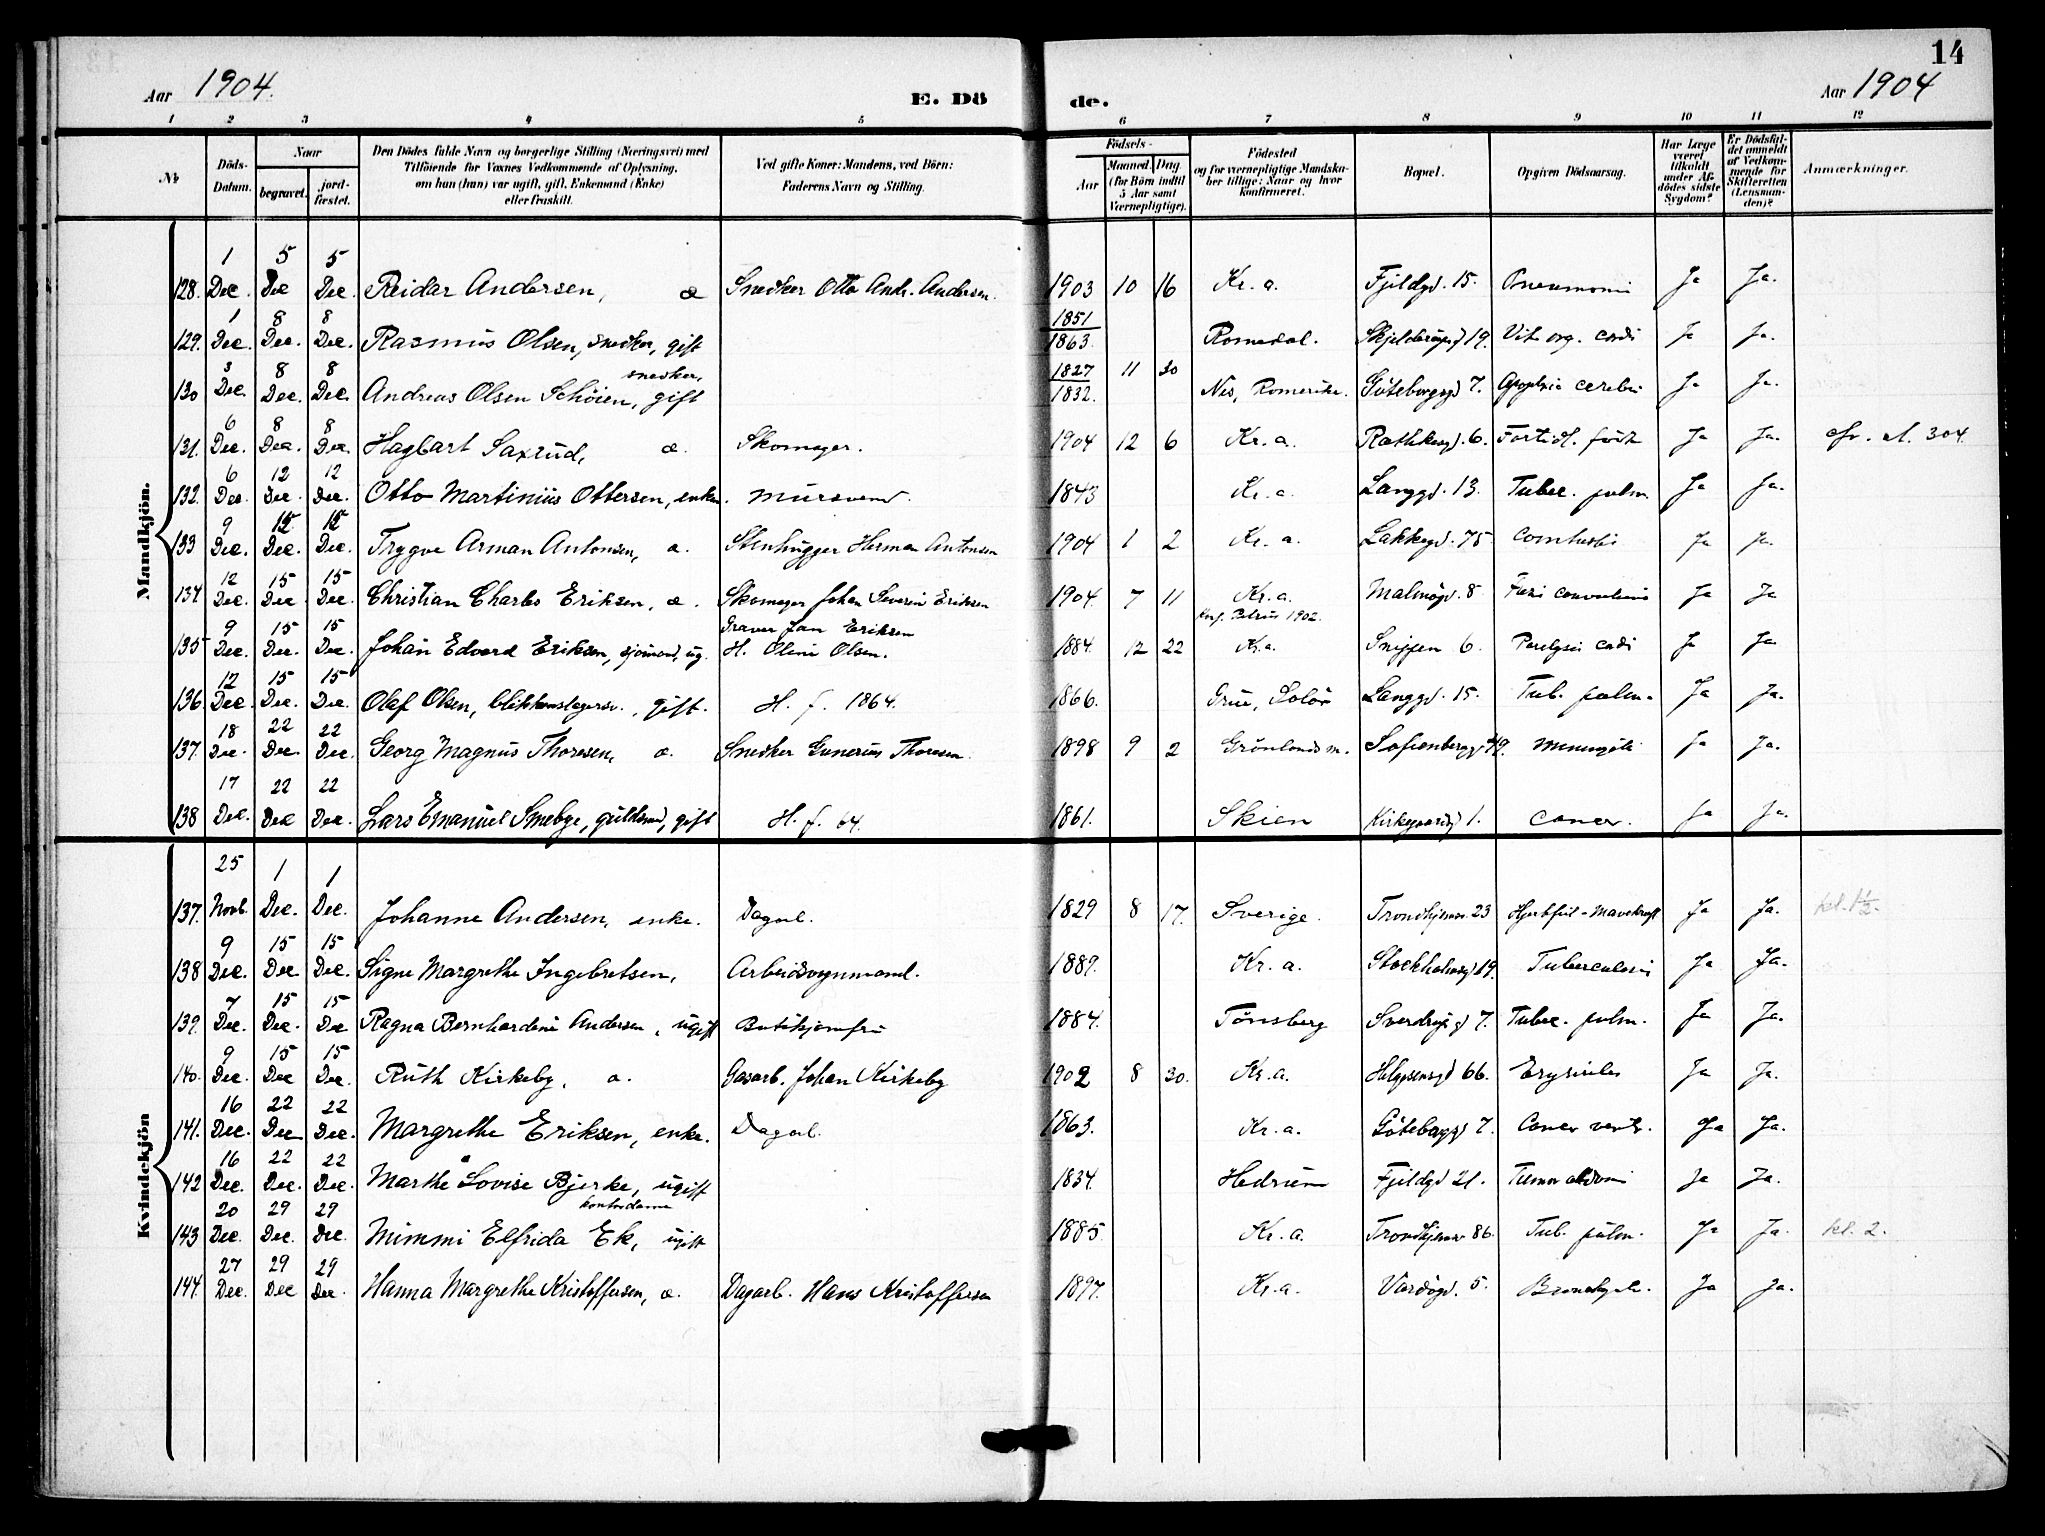 14
Aar 1904. E. Dö de. Aar 1904
1 2 3 4 5 6 7 8 9 10 11 12
№ Döds-Datum. Naar begravet. jord-fæstet. Den Dödes fulde Navn og borgerlige Stilling (Næringsvei) med Tilföiende for Voxnes Vedkommende af Oplysning, om han (hun) var ugift, gift, Enkemand (Enke) eller fraskilt. Ved gifte Koner: Mandens, ved Börn: Faderens Navn og Stilling. Födsels- Aar Maaned. Dag. (for Börn indtil 5 Aar samt Værnepligtige). Födested og for værnepligtige Mandskaber tillige: Naar og hvor konfirmeret. Bopæl. Opgiven Dödsaarsag. Har Læge været tilkaldt under Afdödes sidste Sygdom? Er Dödsfaldet anmeldt af Vedkommende for Skifteretten (Lensmanden)? Anmærkninger.
Mandkjön.
128. 1 Dec. 5 Dec 5 Dec. Reidar Andersen, æ Snedker Otto Andr. Andersen. 1903 10 16 Kr. a. Fjeldgd. 15. Pneumoni Ja Ja.
129. 1 Dec. 8 Dec. 8 Dec. Rasmus Olsen, snedker, gift 1851 1863. Romedal. Skjelderupsgd 19. Vit. org. cordi Ja Ja.
130 3 Dec. 8 Dec. 8 Dec. Andreas Olsen Schöien, snedker, gift 1827 1832. 11 30 Nes, Romerike. Göteborggd 7. Apoplexia cerebri Ja Ja.
131. 6 Dec. 8 Dec. 8 Dec. Hagbart Saxrud, æ. Skomager. 1904 12 6 Kr. a. Rathkesgd. 6. Fortidl. födt Ja Ja. cfr. 304.
132. 6 Dec. 12 Dec. 12 Dec. Otto Martinius Ottersen, enkem. mursvend. 1843 Kr. a. Langgd. 13. Tuberc. pulm. Ja Ja.
133 9 Dec. 15 Dec. 15 Dec. Trygve Arman Antonsen, æ. Stenhugger Herman Antonsen 1904 1 2 Kr. a. Lakkegd. 75 Combustio Ja Ja.
134 12 Dec. 15 Dec. 15 Dec. Christian Charles Eriksen, æ. Skomager Johan Severin Eriksen 1904. 7 11 Kr. a. Malmögd. 8 convulsiones Ja Ja
135 9 Dec. 15 Dec. 15 Dec. Johan Edvard Eriksen, sjömand, ug. Graver Jan Eriksen H. Oline Olsen. 1884. 12 22 Konf. Petrus 1902. Kr. a. 6 Paralysis cordi Ja Ja
136. 12 Dec. 15 Dec. 15 Dec. Olaf Olsen, blikkenslagersv., gift. H. f. 1864. 1866. Grue, Solör Langgd. 15. Tub. pulm. Ja Ja.
137. 18 Dec. 22 Dec. 22 Dec. Georg Magnus Thoresen, æ. Snedker Gunerius Thoresen. 1898 9 2 Grönlands m. Sofienberggd 49. Meningitis Ja Ja.
138 17 Dec. 22 Dec 22 Dec. Lars Emanuel Smebye, guldsmed, gift H. f. 64. 1861. Skien Kirkegaardsgd 1. Cancer. Ja Ja.
Kvindekjön
137. 25 Novb. 1 Dec. 1 Dec. Johanne Andersen, enke. Dagarb. 1829 8 17. Sverige. Trondhjemsv. 23 Hjertfeil - Mavekræft Ja Ja. kl. 1½.
138 9 Dec. 15 Dec 15 Dec. Signe Margrethe Ingebretsen, Arbeidsvognmand. 1889. Kr. a. Stockholmsgd 19. Tuberculosis Ja Ja.
139. 7 Dec. 15 Dec. 15 Dec Ragna Bernhardine Andersen, ugift Butikjomfru 1884. Tönsberg Sverdrupsgd 7. Tuberc. pulm. Ja Ja.
140. 9 Dec. 15 Dec 15 Dec. Ruth Kirkeby, æ. Gasarb. Johan Kirkeby 1902 8 30. Kr. a. Helgesensgd 66. Erysipelas Ja Ja.
141. 16 Dec. 22 Dec 22 Dec. Margrethe Eriksen, enke. Dagarb. 1863. Kr. a. Götebaggd 7. Cancer ventr. Ja Ja.
142 16 Dec. 22 Dec. 22 Dec. Marthe Lovise Bjerke, ugift 1834. Hedrum Fjeldgd 21. Tumor abdomi Ja Ja.
143 20 Dec. 29 Dec. 29 Dec. Mimmi Elfrida Ek, kontordame ugift 1885. Kr. a. Trondhjemsv. 86. Tub. pulm. Ja Ja. kl. 2.
144. 27 Dec. 29 Dec 29 Dec. Hanna Margrethe Kristoffersen, æ. Dagarb. Hans Kristoffersen 1897. Kr. a. Vardögd. 5. Ja Ja.